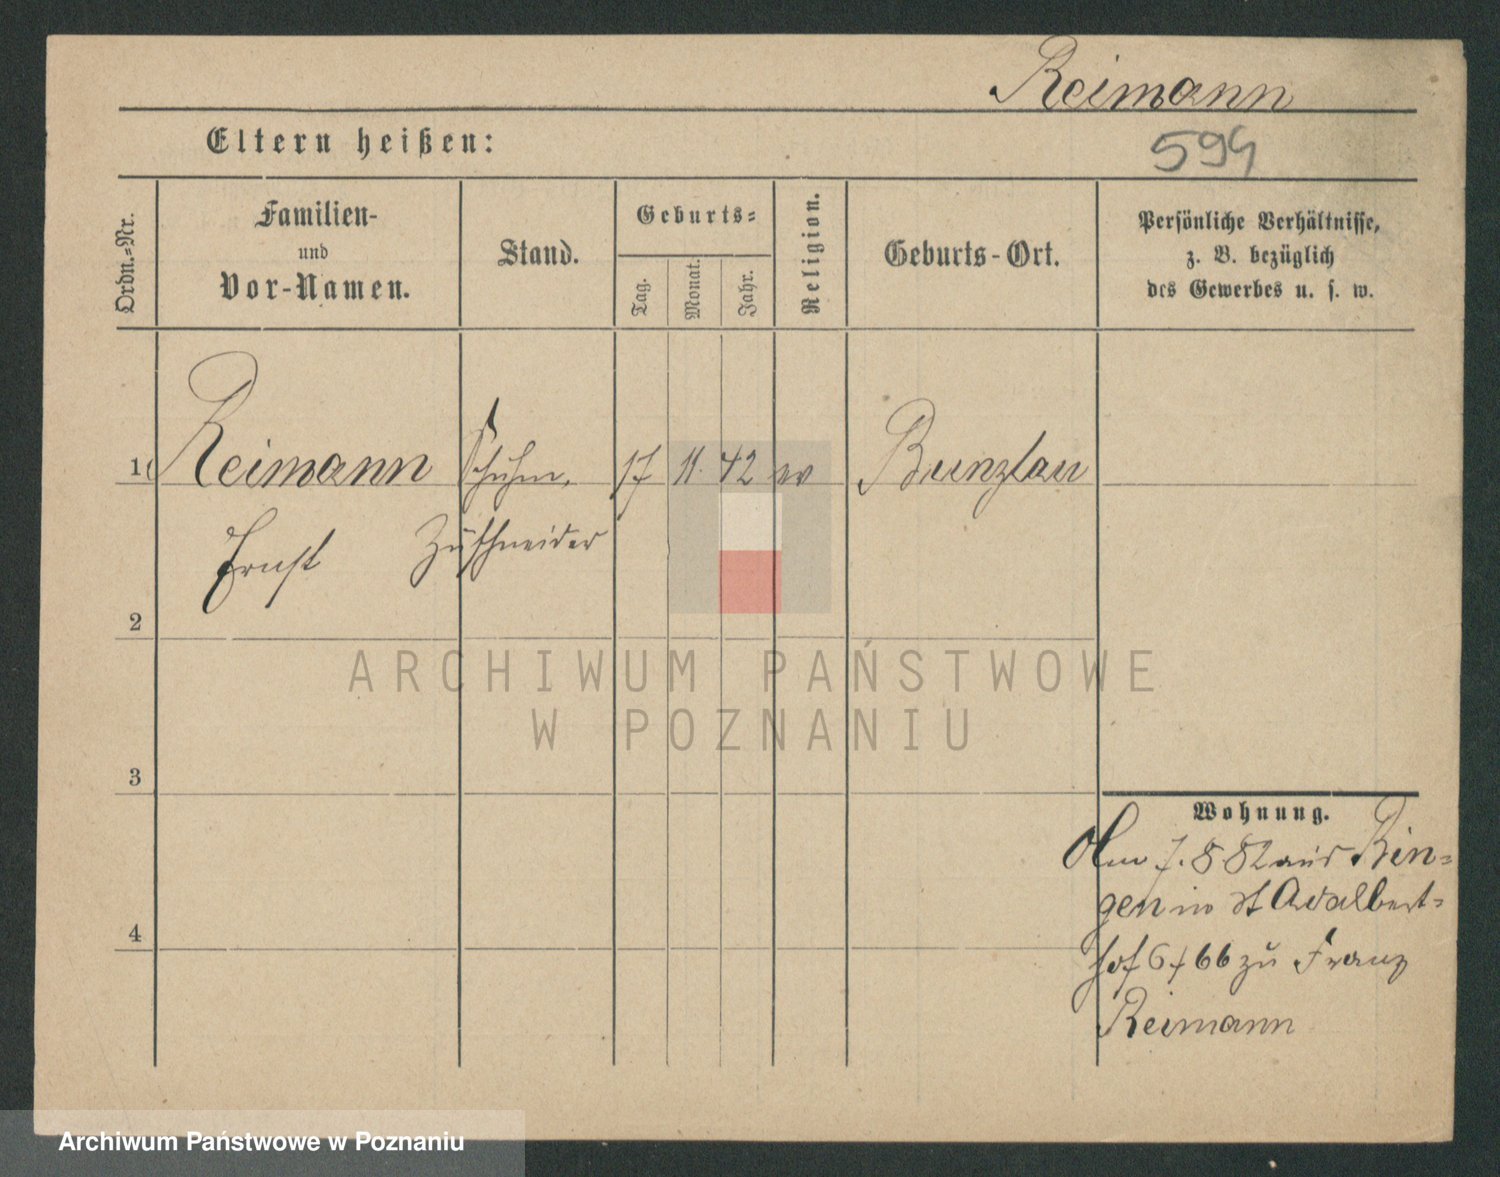 Reimann
Eltern heißen:
594
Ordn.-Nr.
Familien-
und
Vor-Namen.
Stand.
Geburts-
Tag.
Monat.
Jahr.
Religion.
Geburts-Ort.
Persönliche Verhältnisse,
z. B. bezüglich
des Gewerbes u. s. w.
1 Reimann Schuhm. 17 11. 42 ev Bunzlau
Ernst Zuschneider
2
ARCHIWUM PAŃSTWOWE
W POZNANIU
3
Wohnung.
7. 8 82 aus Bin-
gen in St Adalbert-
hof 6/66 zu Franz
Reimann
4
Archiwum Państwowe w Poznaniu